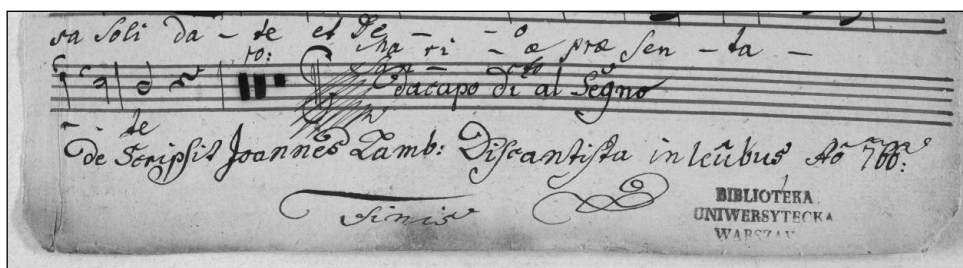 ra soli da - te et De - - o
Ma ri - æ præ sen - ta -
10:
Dacapo al Segno
- - te
De Scripsit Joannes Lamb: Discantista in leûbus Aõ 766:
Finis
BIBLIOTEKA
UNIWERSYTECKA